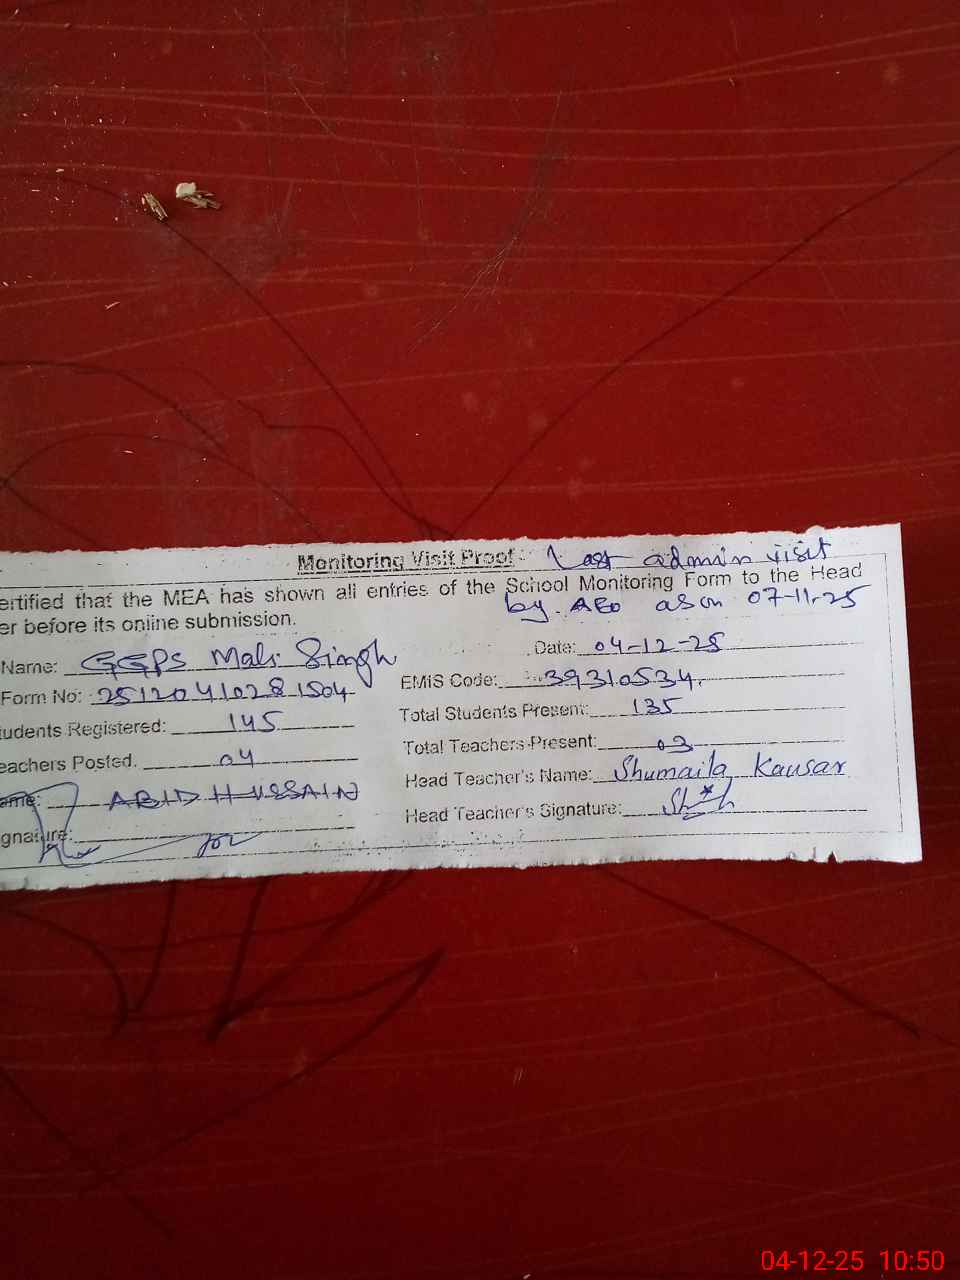 Monitoring Visit Proof Last admin visit
ertified that the MEA has shown all entries of the School Monitoring Form to the Head
by AEO as on 07-11-25
er before its online submission.
Date: 04-12-25
Name: GGPS Mali Singh
EMIS Code: 39310534
Form No: 2512041028 1504
Total Students Present: 135
tudents Registered: 145
Total Teachers Present: 03
eachers Posted. 04
Head Teacher's Name: Shumaila Kausar
ame: ABID HUSSAIN
Head Teacher's Signature:
ignature:
04-12-25 10:50